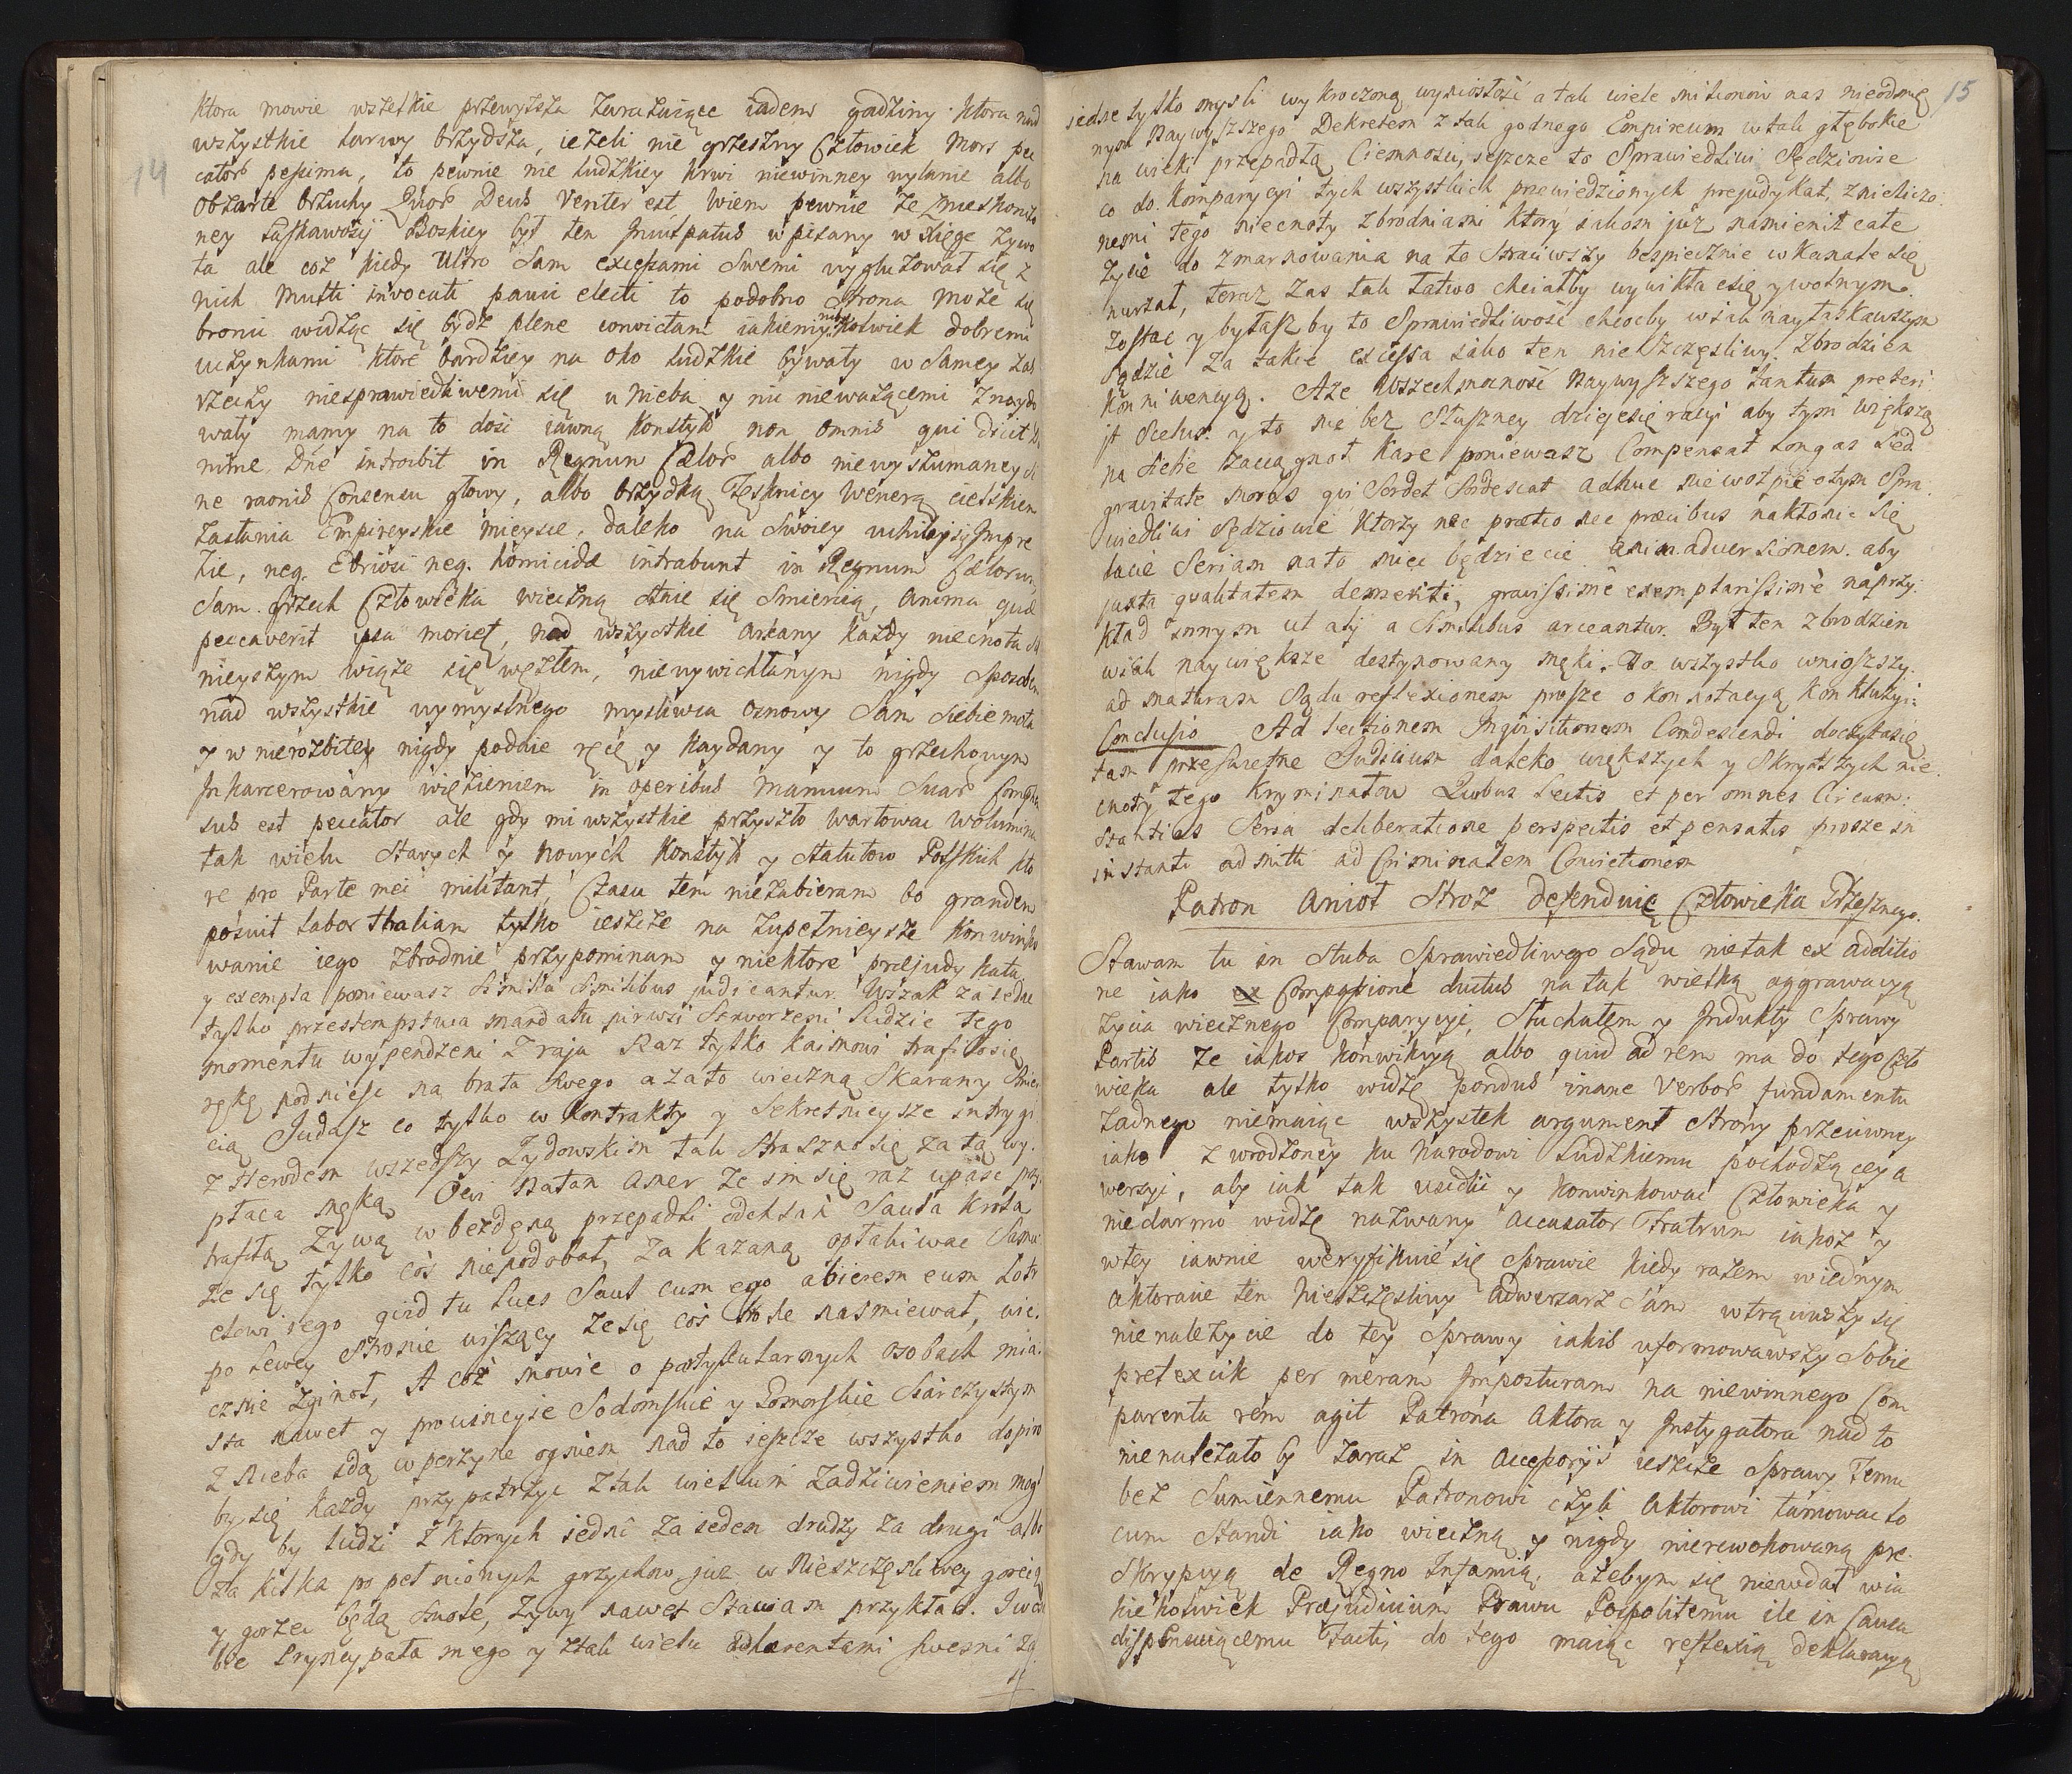 14
ktora mowie wszelkie przewyższa zarażaiące iadem gadziny ktora nad
wszystkie larwy brzydsza, ieżeli nie grzeszny Człowiek Mors pec
cator pessima, to pewnie nie ludzkiey krwi niewinney wylanie albo
obżarte brzuchy Quor Deus Venter est Wiem pewnie że znieskonczo
ney łaskawości Boskiey był ten wpisany w Xięgę żywo
ta ale coż kiedy Ultro Sam excessami Swemi wygluzował się z
nich Multi invocati pauci electi to podobno Strona może się
bronic widżąc się bydź plene convictam iakiemiż kolwiek dobremi
uczynkami ktore bardziey na oko ludzkie bywały w Samey zas
rzeczy niesprawiedliwemi się u Nieba y nic nieważącemi znaydo
wały mamy na to dość iawną Konstyt non omnis qui dicit Do
mine Dne introibit in Regnum Cælor albo niewyszumaney
ne raonis Consensu głowy, albo brzydką Tesknicy Wenerą cielskiem
Zasłania Empireyskie mieysce, daleko na Swoiey
neq. Ebriosi neq. homicidæ intrabunt in Regnum Cælorum
Sam grzech Człowieka wieczną Stnie się Smiercią, anima quæ
peccaverit ipsa moriet, nad wszystkie arkany każdy niecnota
nieyszym wiąże się węzłem, niewywichlanym nigdy Sposobem
nad wszystkie wymyslnego mysliwca osnowy Sam Siebie mota
y w nierozbitey nigdy podnie ręcę y Kaydany y to grzechowym
Inkarcerowany więzieniem in operibus Manuum Suar Compre
sus est peccator ale gdy mi wszystkie przyszło Wartowac Wolumina
tak wielu Starych y Nowych Konstyt y Statutow Polskich kto
re pro Parte mei militant, Czasu tem niezabieram bo grandem
posuit labor thaliam tylko ieszcze na zupełnieysze Konwinko
wanie iego zbrodnie przypominam y niektore præjudykata
y exempla poniewasz Similia Similibus judicantur. Wszak za iedne
tylko przestempstwa mandatu pirwsi Stworzeni ludzie tego
momentu wypendzeni z raju Raz tylko kaimowi trafiłosię
rękę podniesc na brata Swego a zato wieczną Skarany Smier
cią Judasz co tylko w kontrakty y Sekretnieysze intrygi
z Herodem wszedszy Zydowskim tak Strasznosię za tą wy.
płaca męką, Ocvi Natan Aner ze im się raz upaśc przy
trafiłą Zywą w bezdęną przepadli odchłań Saula Krola
ze się tylko coś niepodobał, zakazaną opłakiwac Samu
elowi jego quid tu lues Saul cum ego abierem eum Lotr
po Lewey Stronie wiszący ze się coś trole nasmiewał, wie.
cznie zginoł, A coż mowie o partykularnych osobach mia.
sta nawet y prowincyie Sodomskie y Gomorskie Siarczystym
z Nieba idą w perzyne ogniem nad to ieszcze wszystko dopiro
by się każdy przypatrzyc ztak wielkim Zadziwieniem mogł
gdy by ludzi z ktorych iedni za ieden drudzy za drugi albo
za kilka popełnionych grzychow juz w Nieszczęsliwey goreią
y gorzec będą Smole, żywy nawet Stawiam przykład. Iwan
be Pryncypała mego y ztak wielu Adherentami Swemi za
15
iedne tylko mysli wykroczoną wyniosłość a tak wiele milionow nas nieodmię
nym Naywyszszego Dekretem z tak godnego Empireum wtak głębokie
na wieki przepadłą Ciemnosci, ieszcze to Sprawiedliwi Sędziowie
co do Komparycyi tych wszystkich przewiedzionych prejudykat, z nieliczo
nemi tego niecnoty zbrodniami ktory iakom już namienił całe
życie do zmarnowania na to Strawiwszy bespiecznie w kanale się
nurzał, teraz zas tak łatwo chciałby wywikła csię y wolnym
zostac y byłasz by to Sprawiedliwość choćby w iak nayłaskawszym
Sądzie za takie excessa iako ten nieszczęsliwy zbrodzien
konniwencyą. Aże wszechmocność Naywyszszego tantum preteri
jt Scelus y to nie bez Słuszney dzięiesię racyi aby tym większą
na Siebie zaciągnoł Karę poniewasz Compensat longas Sed
gravitate moras qui Sordet Sordescat adhuc niewotpię otym Spra
wiedliwi Sędziowie ktorzy nec prætio nec præcibus nakłonic się
dacie Seriam nato miec będziecie animadversionem. aby
juxta qualitatem demeriti, gravissimè exemplarissimè naprzy
kład innym ut alij a Similibus arceantur. Był ten zbrodzien
w iak naywiększe destynowany męki. To wszystko wniosszy
ad maturam Sądu reflexionem proszę o konnotacyą konkluzyi:
Conclusio Ad lectionem Inqvisitionum Condescendi doczytasię
tam przeswietne Judicium daleko większych y Skrytszych nie
cnoty tego kryminałow Quibus lectis et per omnes Circum:
stantias Seria deliberatione perspectis et pensatis proszę in
instanti admitti ad Criminalem Convictionem
Patron Anioł Stroż defenduie Człowieka Grzesznego.
Stawam tu in Stuba Sprawiedliwego Sądu nietak ex additio
ne iako ex Compassione ductus na tak wielką aggrawacyą
życia wiecznego Comparycyi, Słuchałem y Indukty Sprawy
Partis że iakos konwikcyą albo quid ad rem ma do tego Czło
wieka ale tylko widzę pondus inane Verbor fundamentu
żadnego niemaiąc wszystek argument Strony przeciwney
iako z wrodżoney ku Narodowi Ludzkiemu pochodzącey a
wersyi, aby iak tak usidlic y konwinkowac Człowieka y
niedarmo widzę nazwany Accusator Fratrum iakoż y
wtey iawnie weryfikuie się Sprawie kiedy razem wiednym
aktoracie ten Nieszczęsliwy Adwersarz Sam wtrąciwszy się
nienależycie do tey Sprawy iakis uformowawszy Sobie
pretexcik per meram Imposturam na niewinnego Com
parenta rem agit Patrona Aktora y Instygatora nad to
nienależało by zaraz in ieszcze Sprawy Temu
bez Sumiennemu Patronowi czyli Aktorowi tamowac lo
cum Standi iako wieczną y nigdy nierewokowaną pre.
Skrypcyą de Regno Infamią, ażebym się niewdał wia
kiekolwiek Præjudicium Prawu Pospolitemu ile in Causa
dispensuiącemu Facti, do tego maiąc reflexią deklaracyą